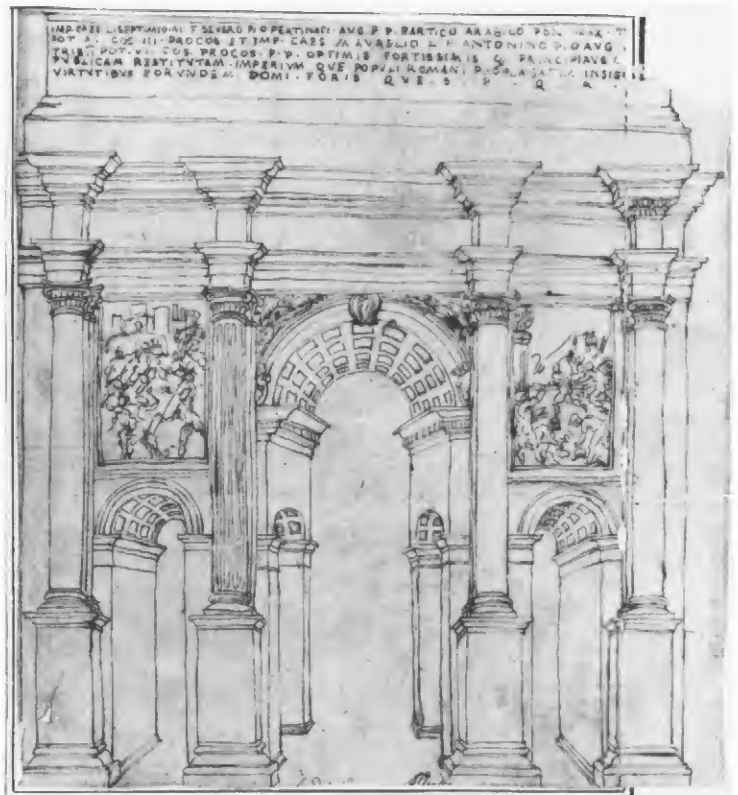 IMP CAES L SEPTIMIO M F SEVERO PIO PERTINACI AVG P P PARTICO ARAB CO PON MAX T
POT X COS III PROCOS ET IMP CAES M AVRELIO L F ANTONINO P O AVG
TRIB POT VI COS PROCOS P P OPTIMIS FORTISSIMIS Q PRINCIPIAVS
PVBLICAM RESTITVTAM IMPERIVM QVE POPVLI ROMANI INSIGNI
VIRTVTIBVS EORVNDEM DOMI FORIS QVE S P Q R